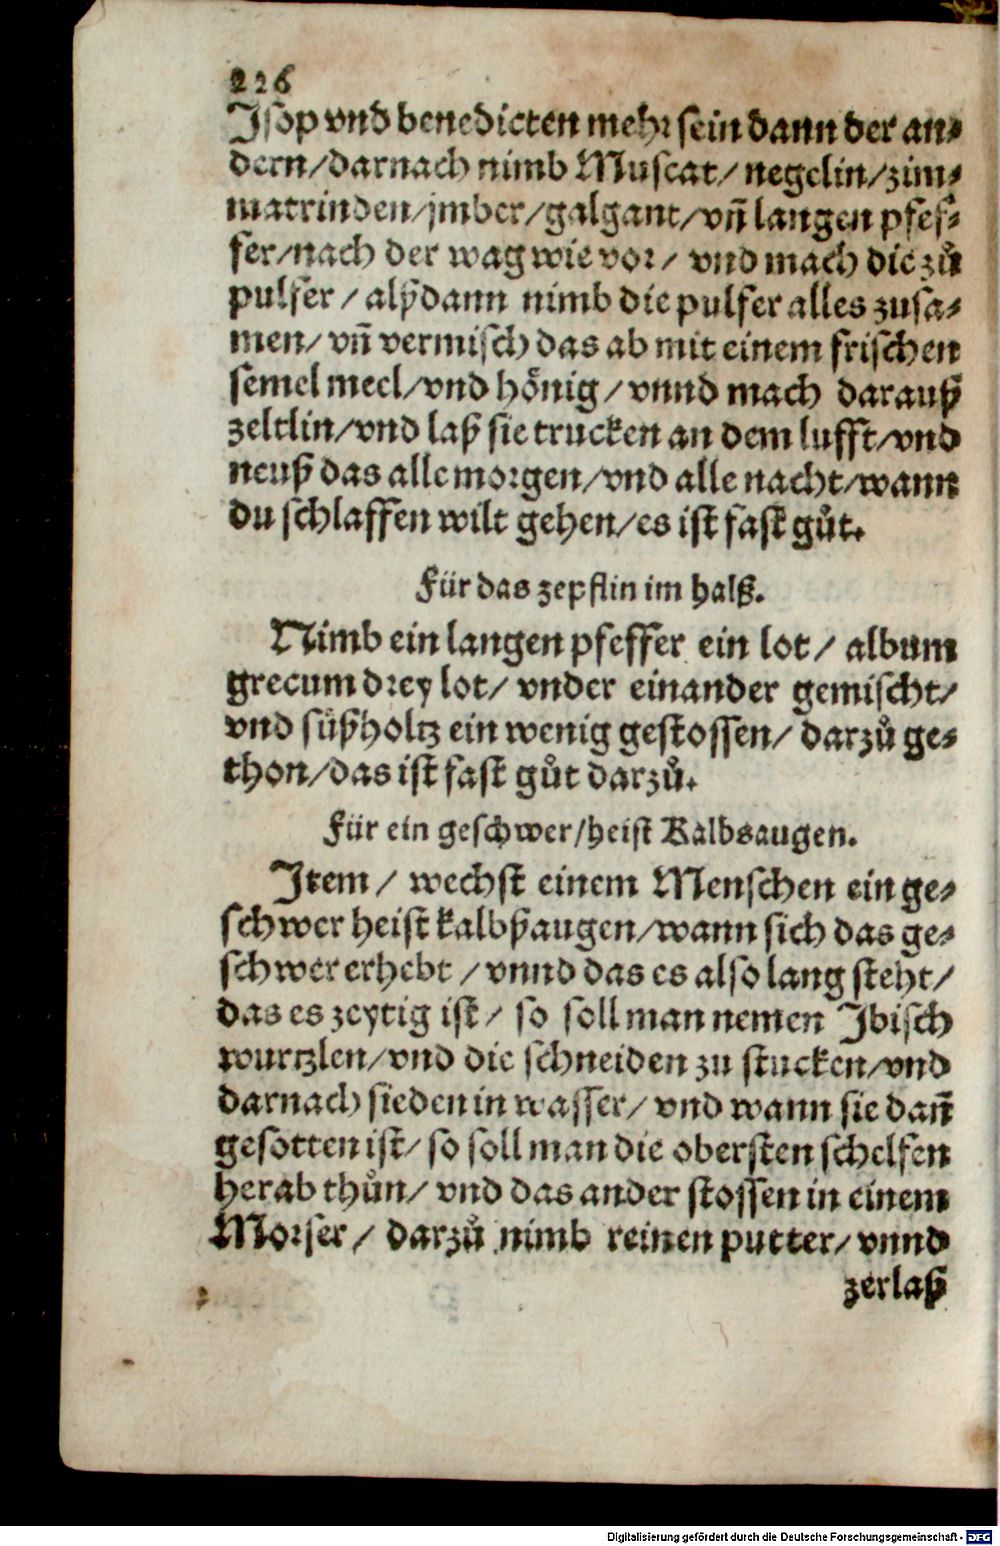 226
Isop vnd benedicten mehr sein dann der an-
dern/darnach nimb Muscat/negelin/zim-
matrinden/jmber/galgant/vñ langen pfef-
fer/nach der wag wie vor/ vnd mach die zů
pulfer/alßdann nimb die pulfer alles zusa-
men/vñ vermisch das ab mit einem frischen
semel meel/vnd hönig/vnnd mach darauß
zeltlin/vnd laß sie trucken an dem lufft/vnd
neuß das alle morgen/vnd alle nacht/wann
du schlaffen wilt gehen/es ist fast gůt.
Für das zepflin im halß.
Nimb ein langen pfeffer ein lot/ album
grecum drey lot/ vnder einander gemischt/
vnd süßholtz ein wenig gestossen/ darzů ge-
thon/das ist fast gůt darzů.
Für ein geschwer/heist Kalbsaugen.
Item/ wechst einem Menschen ein ge-
schwer heist kalbßaugen/wann sich das ge-
schwer erhebt/vnnd das es also lang steht/
das es zeytig ist/ so soll man nemen Ibisch
wurtzlen/vnd die schneiden zu stucken/vnd
darnach sieden in wasser/ vnd wann sie dañ
gesotten ist/ so soll man die obersten schelfen
herab thůn/ vnd das ander stossen in einem
Morser/ darzů nimb reinen putter/ vnnd
zerlaß
Digitalisierung gefördert durch die Deutsche Forschungsgemeinschaft - DFG